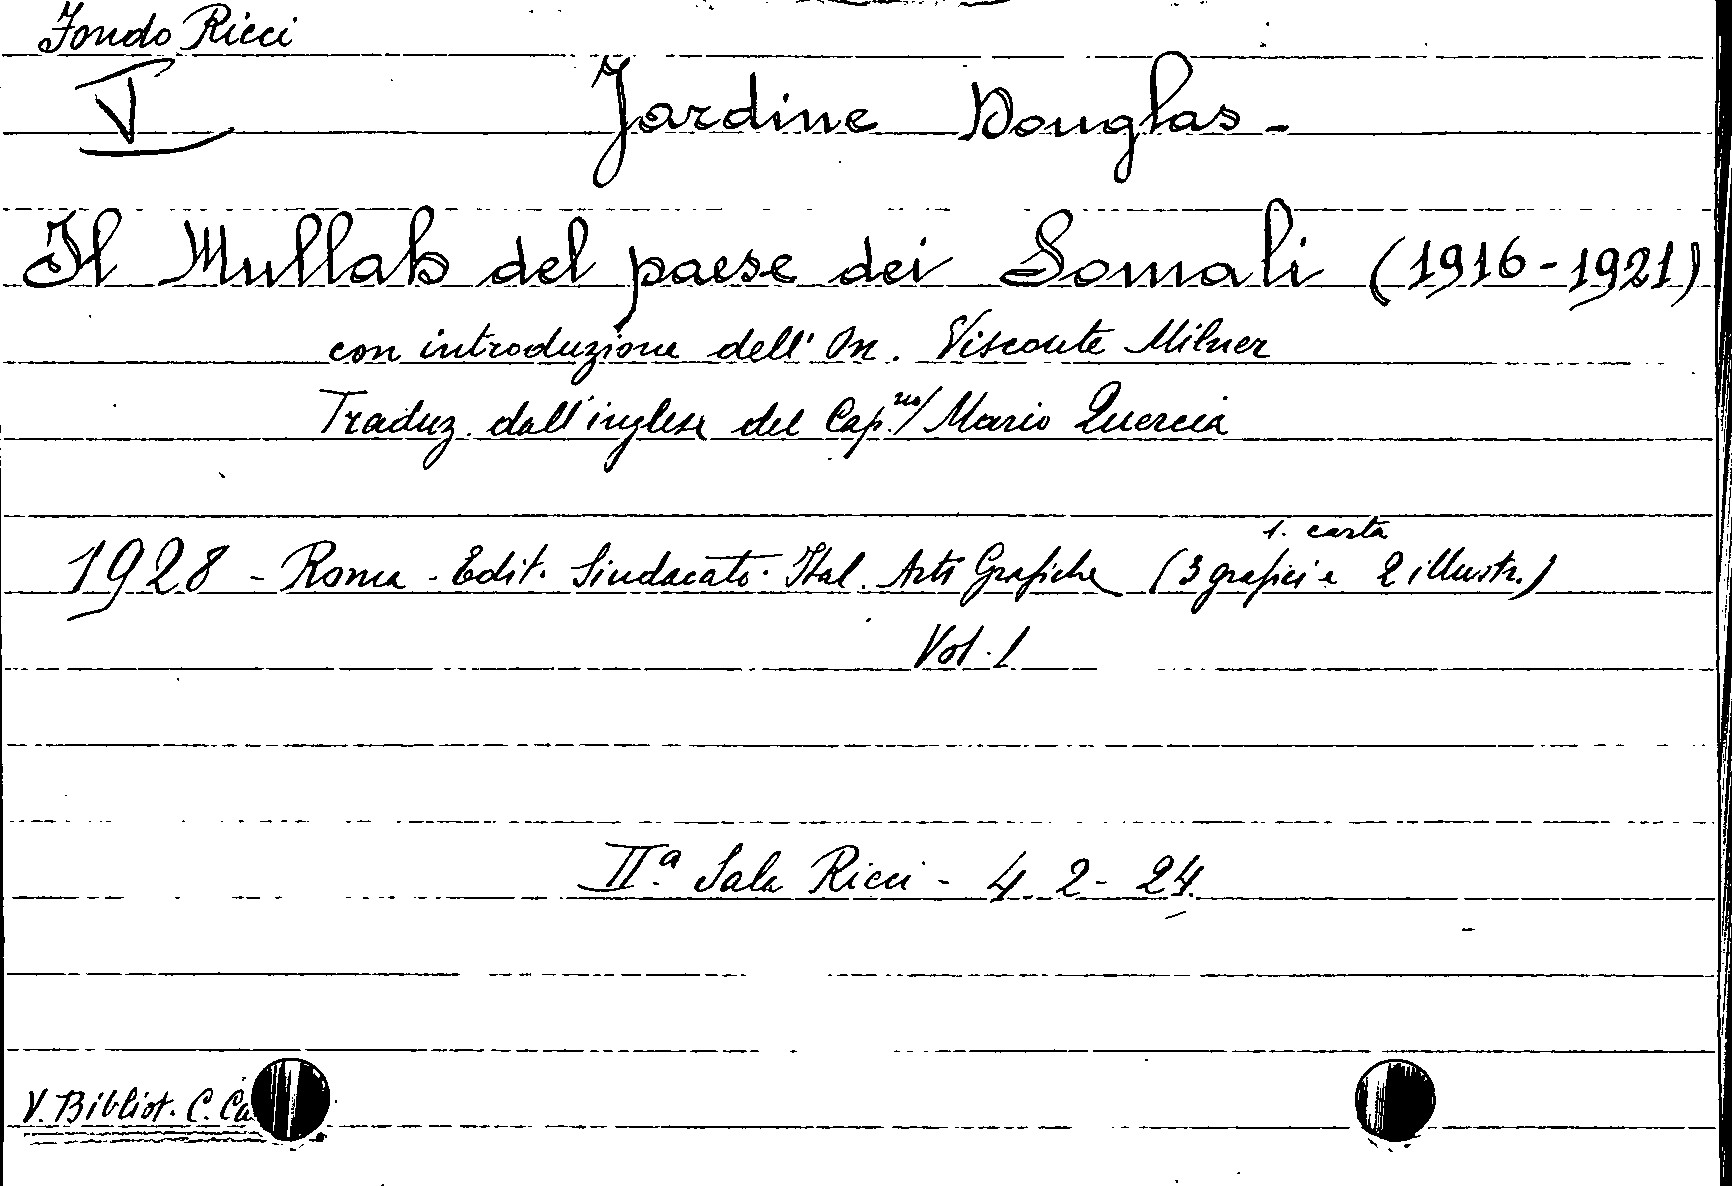 Fondo Ricci
V Jardine Douglas -
Il Mullah del paese dei Somali (1916-1921)
con introduzione dell' On. Visconte Milner
Traduz. dall'inglese del Cap.no/ Mario Quercia
1. carta
1928 - Roma - Edit. Sindacato Ital. Arti Grafiche (3 grafici e 2 illustr.)
Vol. 1
IIª Sala Ricci - 4. 2 - 24.
V. Bibliot. C. Ca